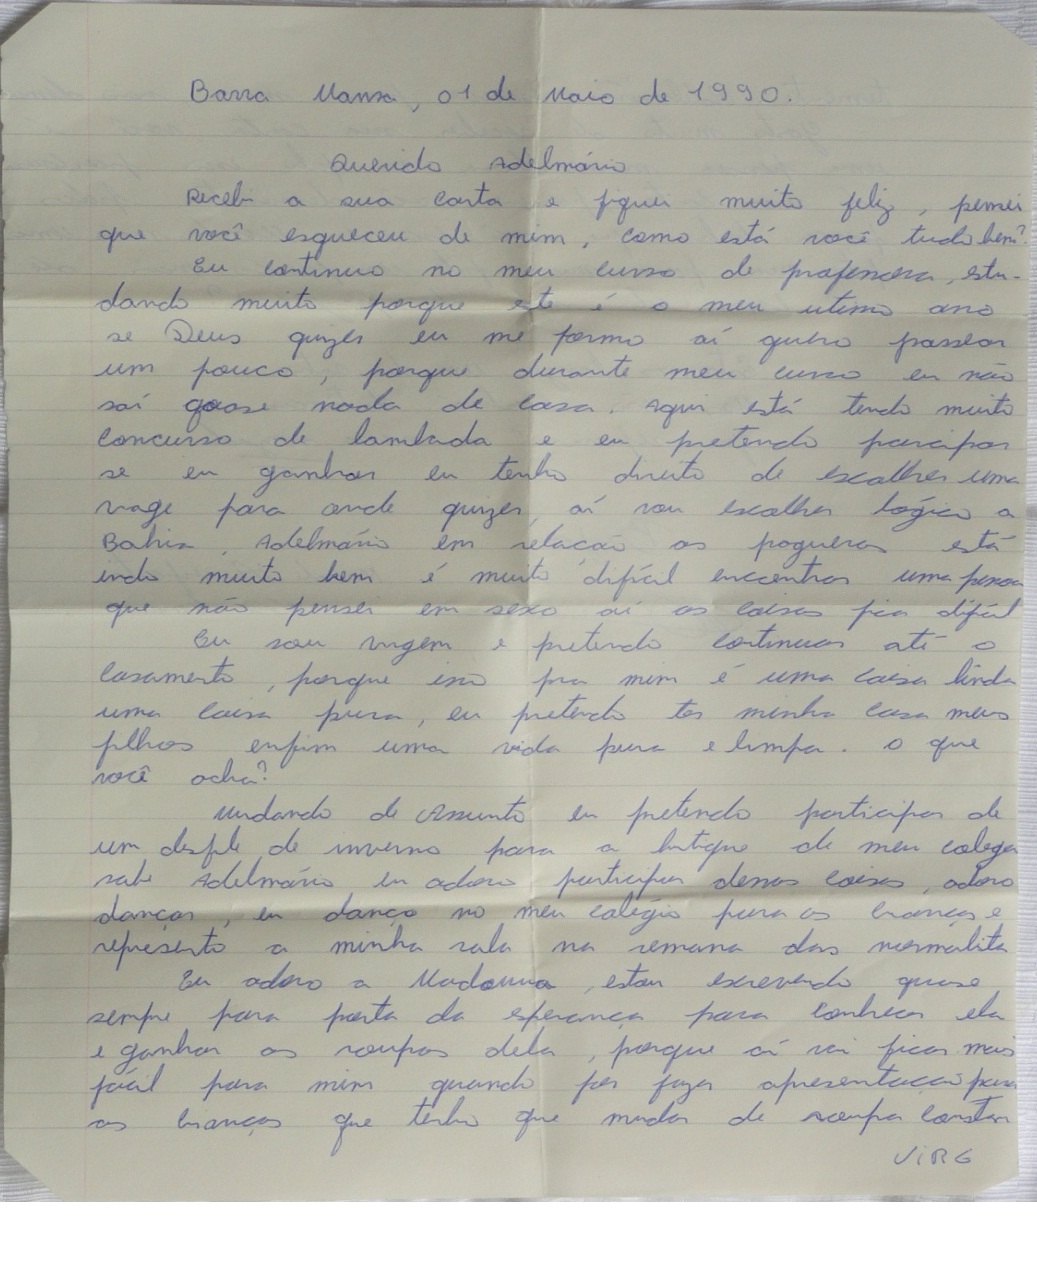 Barra Mansa, 01 de Maio de 1990.
Querido Adelmário
Recebi a sua carta e fiquei muito feliz, pensei
que você esqueceu de mim, como está você tudo bem?
Eu continuo no meu curso de professora, estu-
dando muito porque este é o meu utimo ano
se Deus quizer eu me formo aí quero passear
um pouco, porque durante meu curso eu não
saí quase nada de casa. Aqui está tendo muito
concurso de lambada e eu pretendo paricipar
se eu ganhar eu tenho direito de escolher uma
viage para onde quizer, aí vou escolher lógico a
Bahia, Adelmário em relacão as paqueras está
indo muito bem é muito difícil encontrar uma pessoa
que não penser em sexo aí as coisas fica difícil
Eu sou virgem e pretendo continuar até o
casamento, porque isso pra mim é uma coisa linda
uma coisa pura, eu pretendo ter minha casa meus
filhos enfim uma vida pura e limpa. O que
você acha?
Mudando de Assunto eu pretendo participar de
um desfile de inverno para a butique de meu colega
sabe Adelmário, eu adoro participar dessas coisas, adoro
dançar, eu danço no meu colégio para as crianças e
represento a minha sala na semana das normalista
Eu adoro a Madonna, estou escrevendo quase
sempre para porta da esperança para conhecer ela
e ganhar as roupas dela, porque aí vai ficar mais
fácil para mim quando for fazer apresentacão para
as crianças que tenho que mudar de roupa constan
VIRG